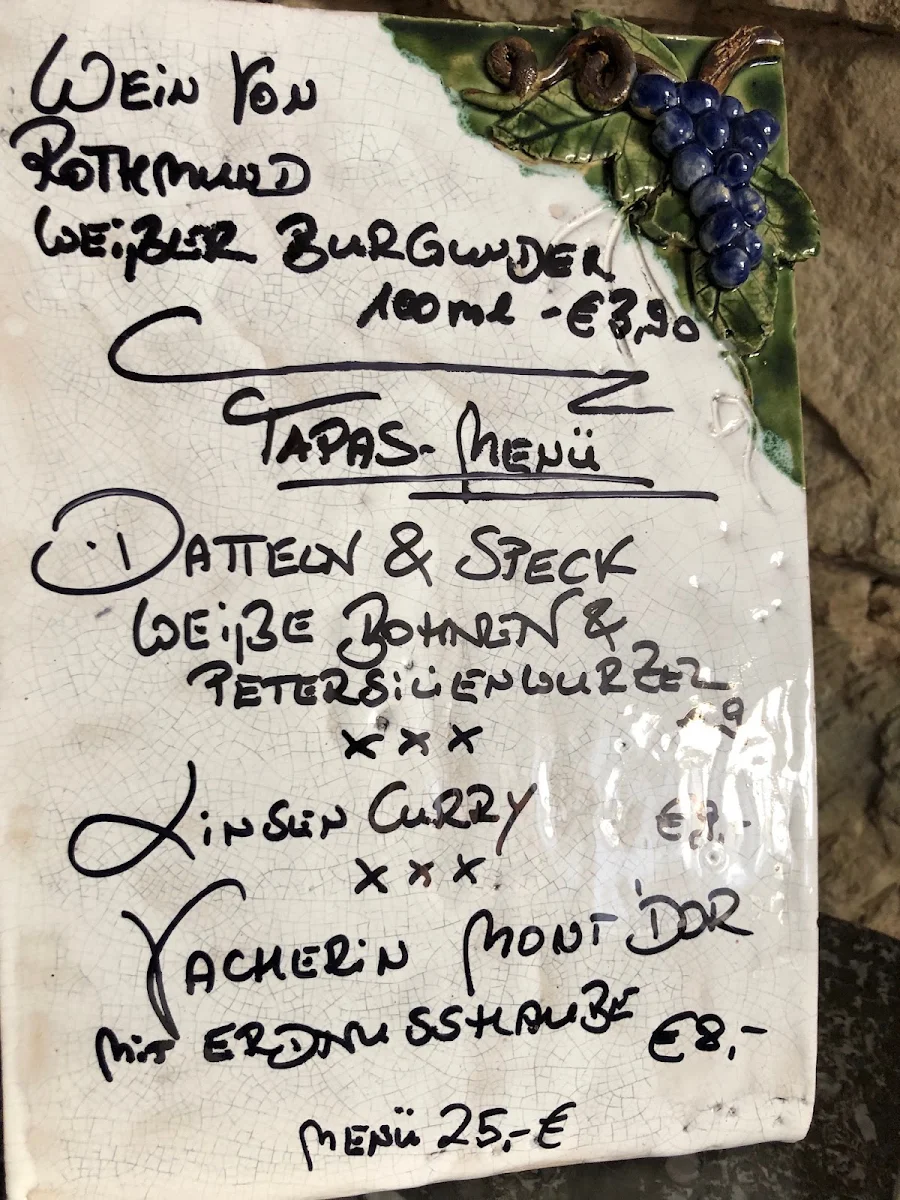 WEiN VON
ROTHMUND
WEIßER BURGUNDER
100 ml - €3,90
TAPAS-MENÜ
DATTELN & SPECK
WEIßE BOHNEN &
PETERSILIENWURZEL
x x x
LINSEN CURRY
x x x
VACHERIN MONT D'OR
MIT ERDNUSSHAUBE €8,-
MENÜ 25,-€